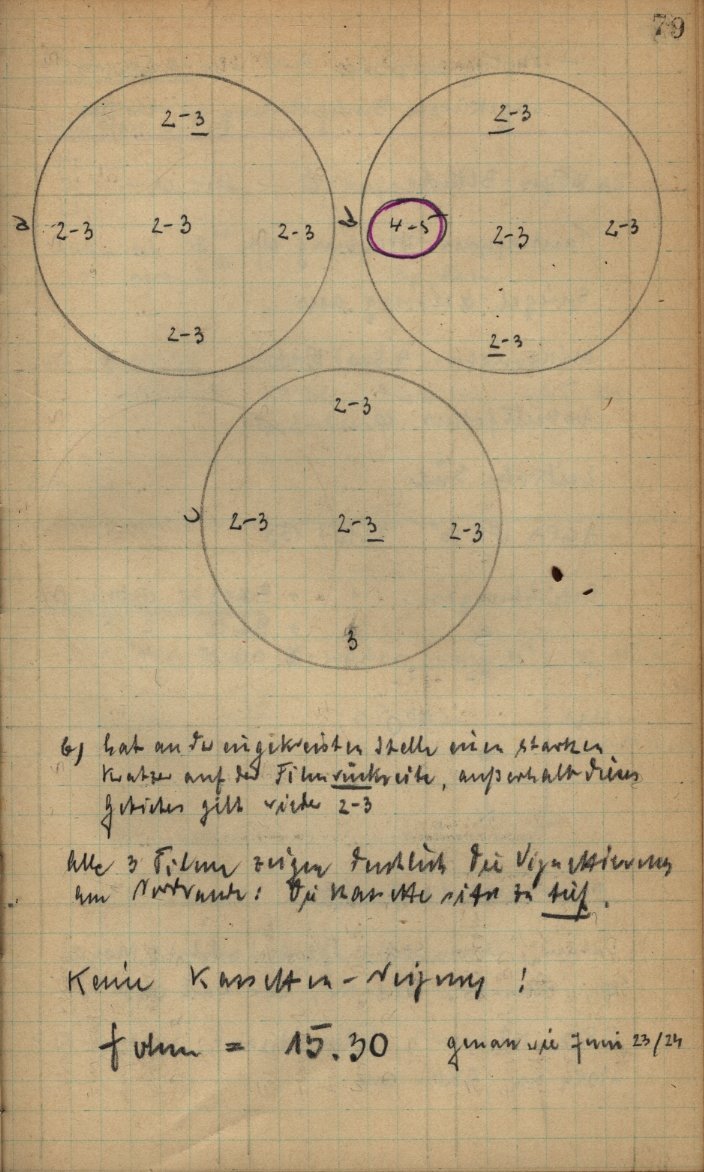 79
2-3 2-3
a 2-3 2-3 2-3 b 4-5 2-3 2-3
2-3 2-3
2-3
c 2-3 2-3 2-3
3
b) hat an der eingekreisten Stelle einen starken
Kratzer auf der Filmrückseite, außerhalb dieses
Gebietes gilt wieder 2-3
Alle 3 Filme zeigen deutlich die Vignettierung
am Nordrande: Die Kassette sitzt zu tief.
Keine Kassetten-Neigung!
f ohm = 15.30 genau wie Juni 23/24